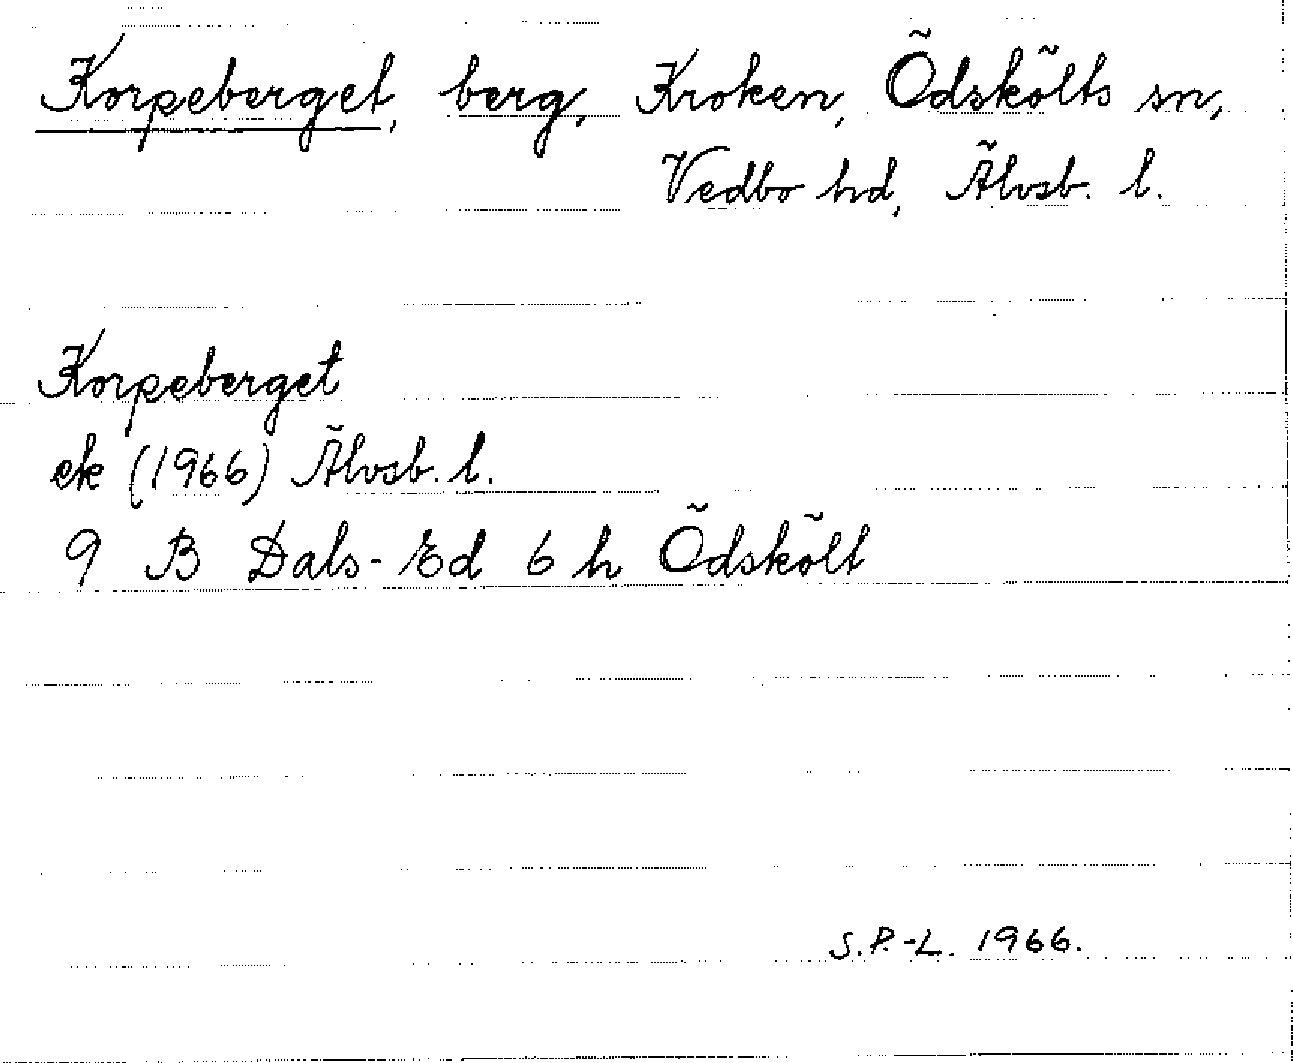 Korpeberget, berg, Kroken, Ödskölts sn,
Vedbo hd, Älvsb. l.
Korpeberget
ek (1966) Älvsb. l.
9 B Dals-Ed 6 h Ödskölt
S.P.-L. 1966.